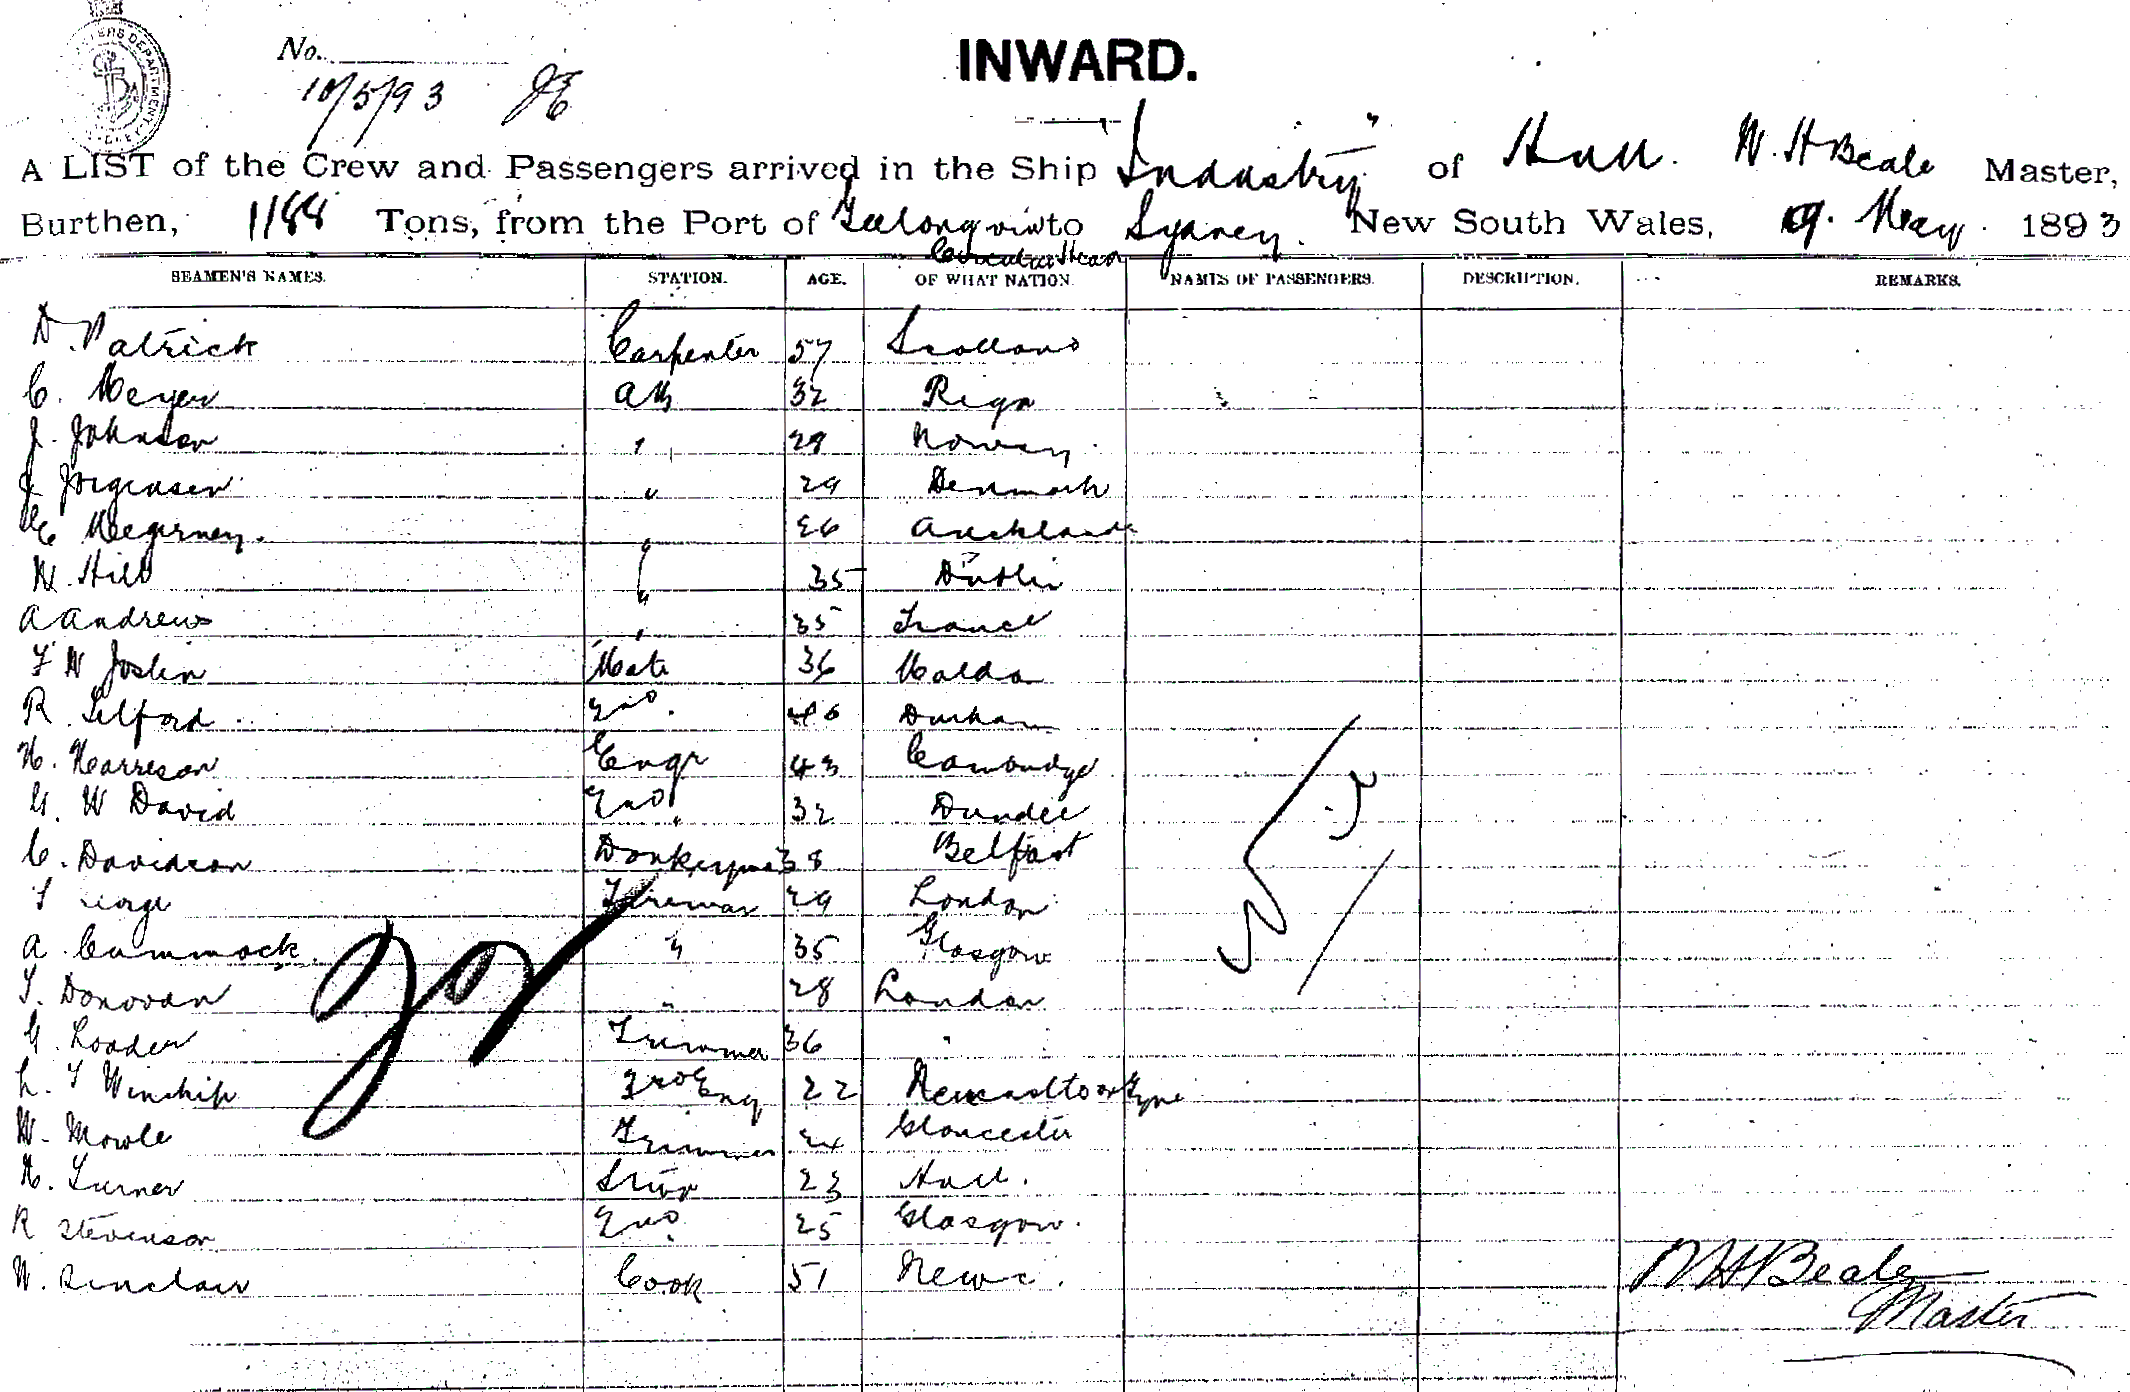 No.
10/5/93 JE
INWARD.
A LIST of the Crew and Passengers arrived in the Ship "Industry" of Hull. W. H Beale Master,
Burthen, 1188 Tons, from the Port of Geelong via to Sydney. New South Wales, 9. May. 1893
SEAMEN'S NAMES. STATION. AGE. OF WHAT NATION. NAMES OF PASSENGERS. DESCRIPTION. REMARKS.
D. Patrick Carpenter 57 Scotland
C. Meyer AB 32 Riga
J. Johnson " 29 Norway
J Jorgensen " 29 Denmark
" 26 Auckland
W. Hill " 35 Dublin
A Andrews " 35 France
F W Joslin Mate 36 Maldon
R Telford 2nd. 46 Durham
H. Harrison Engr 43 Cambridge
G. W David 2nd " 32 Dundee
C. Davidson Donkeyman 38 Belfast
T George Fireman 29 London
A. Cammock. " 35 Glasgow
T. Donovan " 28 London
G. Loader Trimmer 36 "
L. T Winship 3rd Eng 22 Newcastle on Tyne
W. Mowle Trimmer 24 Gloucester
H. Turner Stwd 23 Hull.
R Stevenson 2nd. 25 Glasgow.
W. Sinclair Cook 51 Newc.
W H Beale
Master